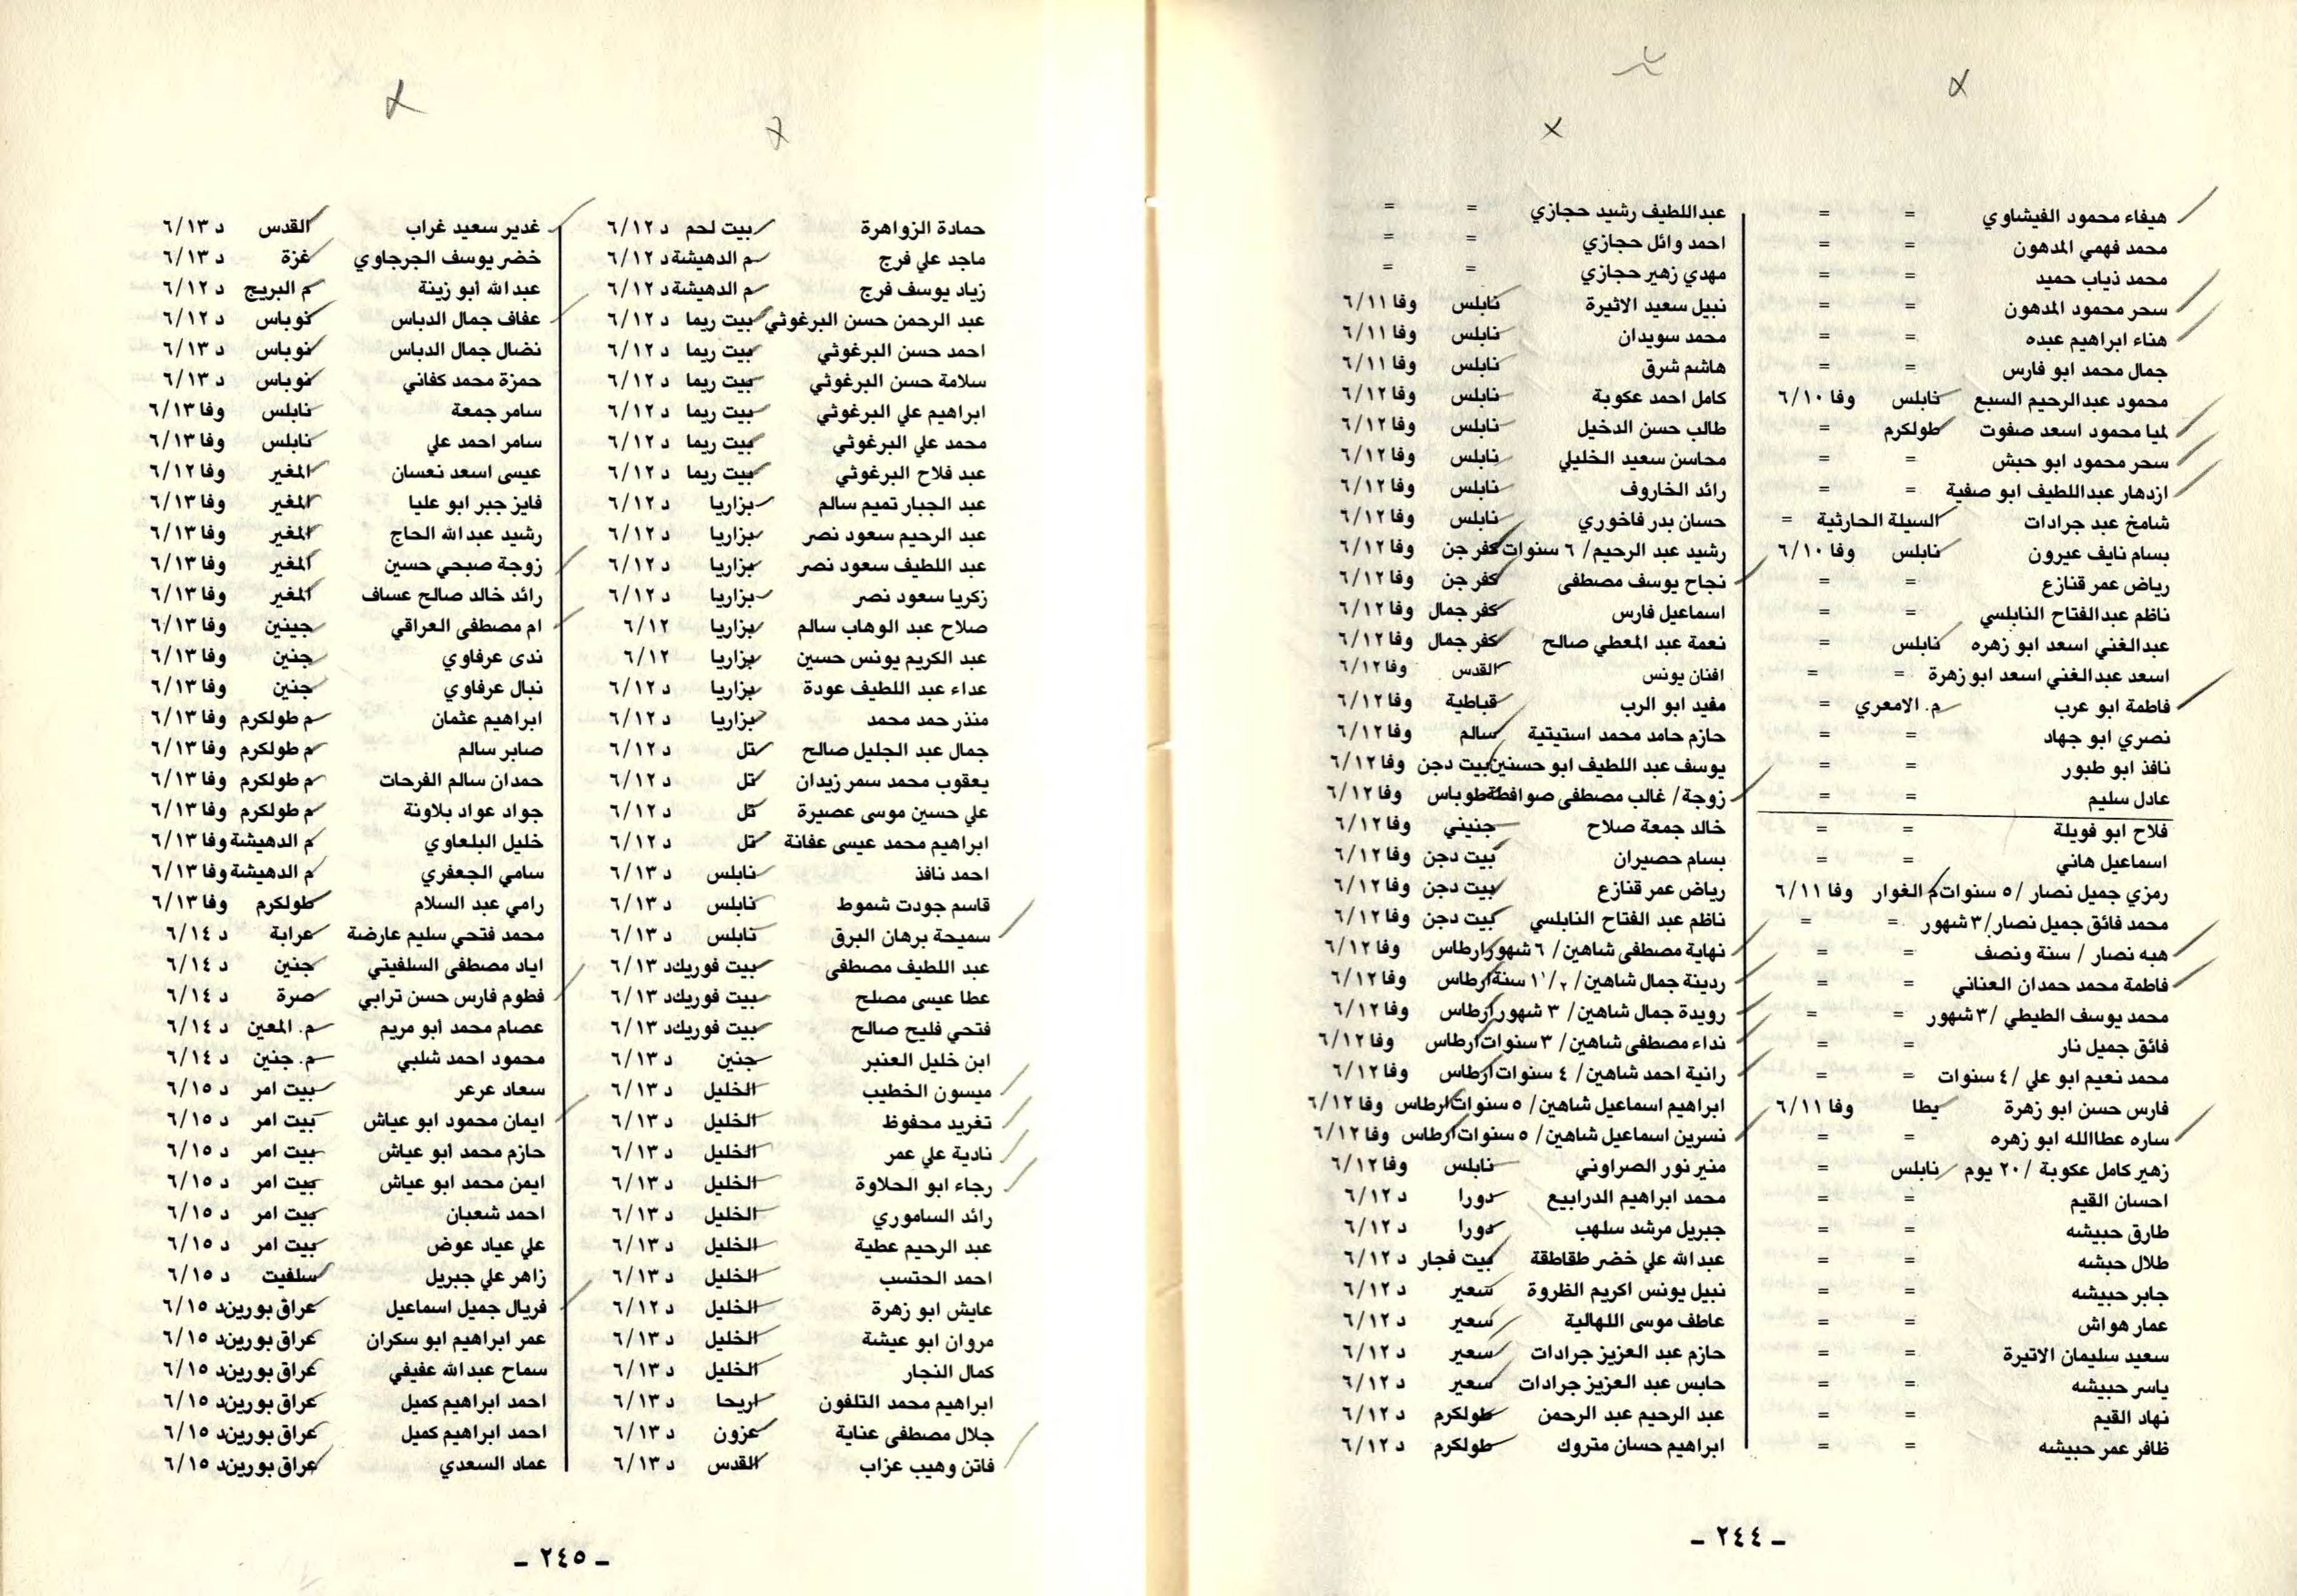 هيفاء محمود الفيشاوي = =
محمد فهمي المدهون = =
محمد ذياب حميد = =
سحر محمود المدهون = =
هناء ابراهيم عبده = =
جمال محمد ابو فارس = =
محمود عبدالرحيم السبع نابلس وفا ٦/١٠
لميا محمود اسعد صفوت طولكرم =
سحر محمود ابو حبش = =
ازدهار عبداللطيف ابو صفية = =
شامخ عبد جرادات السيلة الحارثية =
بسام نايف عيرون نابلس وفا ٦/١٠
رياض عمر قنازع = =
ناظم عبدالفتاح النابلسي = =
عبدالغني اسعد ابو زهره نابلس =
اسعد عبدالغني اسعد ابو زهرة = =
فاطمة ابو عرب م. الامعري =
نصري ابو جهاد = =
نافذ ابو طبور = =
عادل سليم = =
فلاح ابو فويلة = =
اسماعيل هاني = =
رمزي جميل نصار /٥ سنوات م الغوار وفا ٦/١١
محمد فائق جميل نصار/٣ شهور = =
هبه نصار / سنة ونصف = =
فاطمة محمد حمدان العناني = =
محمد يوسف الطيطي /٣ شهور = =
فائق جميل نار = =
محمد نعيم ابو علي /٤ سنوات = =
فارس حسن ابو زهرة يطا وفا ٦/١١
ساره عطاالله ابو زهره = =
زهير كامل عكوبة /٢٠ يوم نابلس =
احسان القيم = =
طارق حبيشه = =
طلال حبشه = =
جابر حبيشه = =
عمار هواش = =
سعيد سليمان الاتيرة = =
ياسر حبيشه = =
نهاد القيم = =
ظافر عمر حبيشه = =
عبداللطيف رشيد حجازي = =
احمد وائل حجازي = =
مهدي زهير حجازي = =
نبيل سعيد الاثيرة نابلس وفا ٦/١١
محمد سويدان نابلس وفا ٦/١١
هاشم شرق نابلس وفا ٦/١١
كامل احمد عكوبة نابلس وفا ٦/١٢
طالب حسن الدخيل نابلس وفا ٦/١٢
محاسن سعيد الخليلي نابلس وفا ٦/١٢
رائد الخاروف نابلس وفا ٦/١٢
حسان بدر فاخوري نابلس وفا ٦/١٢
رشيد عبد الرحيم/ ٦ سنوات كفر جن وفا ٦/١٢
نجاح يوسف مصطفى كفر جن وفا ٦/١٢
اسماعيل فارس كفر جمال وفا ٦/١٢
نعمة عبد المعطي صالح كفر جمال وفا ٦/١٢
افنان يونس القدس وفا ٦/١٢
مفيد ابو الرب قباطية وفا ٦/١٢
حازم حامد محمد استيتية سالم وفا ٦/١٢
يوسف عبد اللطيف ابو حسنين بيت دجن وفا ٦/١٢
زوجة/ غالب مصطفى صوافطة طوباس وفا ٦/١٢
خالد جمعة صلاح جنيني وفا ٦/١٢
بسام حصيران بيت دجن وفا ٦/١٢
رياض عمر قنازع بيت دجن وفا ٦/١٢
ناظم عبد الفتاح النابلسي بيت دجن وفا ٦/١٢
نهاية مصطفى شاهين/ ٦ شهور ارطاس وفا ٦/١٢
ردينة جمال شاهين/ ١ ١/٢ سنة ارطاس وفا ٦/١٢
رويدة جمال شاهين/ ٣ شهور ارطاس وفا ٦/١٢
نداء مصطفى شاهين/ ٣ سنوات ارطاس وفا ٦/١٢
رانية احمد شاهين/ ٤ سنوات ارطاس وفا ٦/١٢
ابراهيم اسماعيل شاهين/ ٥ سنوات ارطاس وفا ٦/١٢
نسرين اسماعيل شاهين/ ٥ سنوات ارطاس وفا ٦/١٢
منير نور الصراوني نابلس وفا ٦/١٢
محمد ابراهيم الدرابيع دورا د ٦/١٢
جبريل مرشد سلهب دورا د ٦/١٢
عبدالله علي خضر طقاطقة بيت فجار د ٦/١٢
نبيل يونس اكريم الظروة سعير د ٦/١٢
عاطف موسى اللهالية سعير د ٦/١٢
حازم عبد العزيز جرادات سعير د ٦/١٢
حابس عبد العزيز جرادات سعير د ٦/١٢
عبد الرحيم عبد الرحمن طولكرم د ٦/١٢
ابراهيم حسان متروك طولكرم د ٦/١٢
ـ ٢٤٤ ـ
حمادة الزواهرة بيت لحم د ٦/١٢
ماجد علي فرج م الدهيشة د ٦/١٢
زياد يوسف فرج م الدهيشة د ٦/١٢
عبد الرحمن حسن البرغوثي بيت ريما د ٦/١٢
احمد حسن البرغوثي بيت ريما د ٦/١٢
سلامة حسن البرغوثي بيت ريما د ٦/١٢
ابراهيم علي البرغوثي بيت ريما د ٦/١٢
محمد علي البرغوثي بيت ريما د ٦/١٢
عبد فلاح البرغوثي بيت ريما د ٦/١٢
عبد الجبار تميم سالم بزاريا د ٦/١٢
عبد الرحيم سعود نصر بزاريا د ٦/١٢
عبد اللطيف سعود نصر بزاريا د ٦/١٢
زكريا سعود نصر بزاريا د ٦/١٢
صلاح عبد الوهاب سالم بزاريا ٦/١٢
عبد الكريم يونس حسين بزاريا ٦/١٢
عداء عبد اللطيف عودة بزاريا د ٦/١٢
منذر حمد محمد بزاريا د ٦/١٢
جمال عبد الجليل صالح تل د ٦/١٢
يعقوب محمد سمر زيدان تل د ٦/١٢
علي حسين موسى عصيرة تل د ٦/١٢
ابراهيم محمد عيسى عفانة تل د ٦/١٢
احمد نافذ نابلس د ٦/١٣
قاسم جودت شموط نابلس د ٦/١٣
سميحة برهان البرق نابلس د ٦/١٣
عبد اللطيف مصطفى بيت فوريك د ٦/١٣
عطا عيسى مصلح بيت فوريك د ٦/١٣
فتحي فليح صالح بيت فوريك د ٦/١٣
ابن خليل العنبر جنين د ٦/١٣
ميسون الخطيب الخليل د ٦/١٣
تغريد محفوظ الخليل د ٦/١٣
نادية علي عمر الخليل د ٦/١٣
رجاء ابو الحلاوة الخليل د ٦/١٣
رائد الساموري الخليل د ٦/١٣
عبد الرحيم عطية الخليل د ٦/١٣
احمد الحتسب الخليل د ٦/١٣
عايش ابو زهرة الخليل د ٦/١٢
مروان ابو عيشة الخليل د ٦/١٣
كمال النجار الخليل د ٦/١٣
ابراهيم محمد التلفون اريحا د ٦/١٣
جلال مصطفى عناية عزون د ٦/١٣
فاتن وهيب عزاب القدس د ٦/١٣
غدير سعيد غراب القدس د ٦/١٣
خضر يوسف الجرجاوي غزة د ٦/١٣
عبدالله أبو زينة م البريج د ٦/١٢
عفاف جمال الدباس نوباس د ٦/١٢
نضال جمال الدباس نوباس د ٦/١٣
حمزة محمد كفاني نوباس د ٦/١٣
سامر جمعة نابلس وفا ٦/١٣
سامر احمد علي نابلس وفا ٦/١٣
عيسى اسعد نعسان المغير وفا ٦/١٢
فايز جبر ابو عليا المغير وفا ٦/١٣
رشيد عبدالله الحاج المغير وفا ٦/١٣
زوجة صبحي حسين المغير وفا ٦/١٣
رائد خالد صالح عساف المغير وفا ٦/١٣
ام مصطفى العراقي جينين وفا ٦/١٣
ندى عرفاوي جنين وفا ٦/١٣
نبال عرفاوي جنين وفا ٦/١٣
ابراهيم عثمان م طولكرم وفا ٦/١٣
صابر سالم م طولكرم وفا ٦/١٣
حمدان سالم الفرحات م طولكرم وفا ٦/١٣
جواد عواد بلاونة م طولكرم وفا ٦/١٣
خليل البلعاوي م الدهيشة وفا ٦/١٣
سامي الجعفري م الدهيشة وفا ٦/١٣
رامي عبد السلام طولكرم وفا ٦/١٣
محمد فتحي سليم عارضة عرابة د ٦/١٤
اياد مصطفى السلفيتي جنين د ٦/١٤
فطوم فارس حسن ترابي صرة د ٦/١٤
عصام محمد أبو مريم م. المعين د ٦/١٤
محمود احمد شلبي م. جنين د ٦/١٤
سعاد عرعر بيت امر د ٦/١٥
ايمان محمود ابو عياش بيت امر د ٦/١٥
حازم محمد أبو عياش بيت امر د ٦/١٥
ايمن محمد ابو عياش بيت امر د ٦/١٥
احمد شعبان بيت امر د ٦/١٥
علي عياد عوض بيت امر د ٦/١٥
زاهر علي جبريل سلفيت د ٦/١٥
فريال جميل اسماعيل عراق بورين د ٦/١٥
عمر ابراهيم ابو سكران عراق بورين د ٦/١٥
سماح عبدالله عفيفي عراق بورين د ٦/١٥
احمد ابراهيم كميل عراق بورين د ٦/١٥
احمد ابراهيم كميل عراق بورين د ٦/١٥
عماد السعدي عراق بورين د ٦/١٥
ـ ٢٤٥ ـ